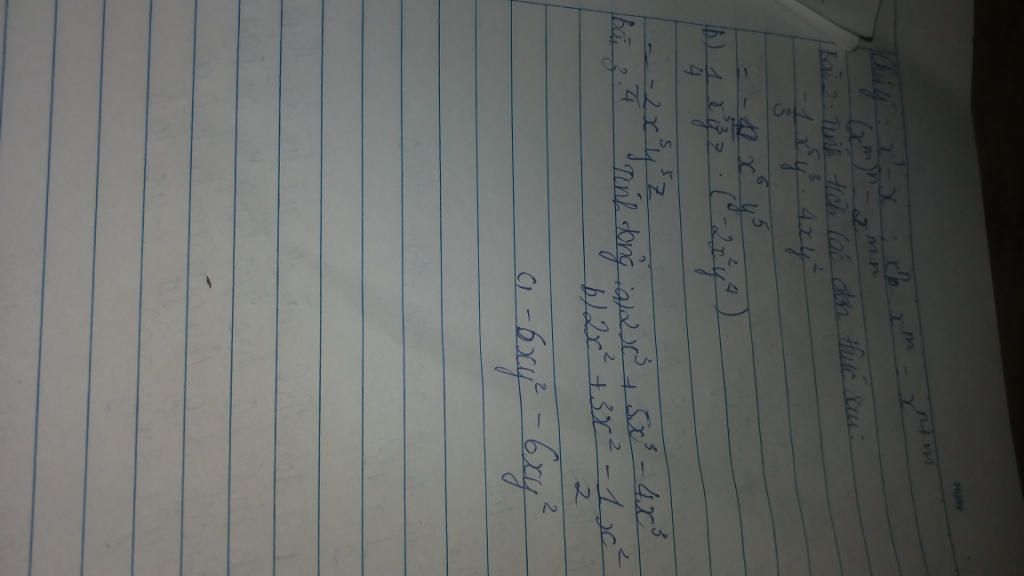 Chú ý: x¹ = x ; xⁿ. xᵐ = xⁿ⁺ᵐ
(xᵐ)ⁿ = xᵐⁿ
Bài 2: Tính tích các đơn thức sau:
-1/3 x⁵y³ . 4xy²
x⁶y⁵
b) 1/4 x³yz . (-2x²y⁴)
= -2/4 x⁵y⁵z
Bài 3: Tính tổng a) 2x³ + 5x³ - 4x³
b) 2x² + 3x² - 1/2 x²
c) -6xy² - 6xy²